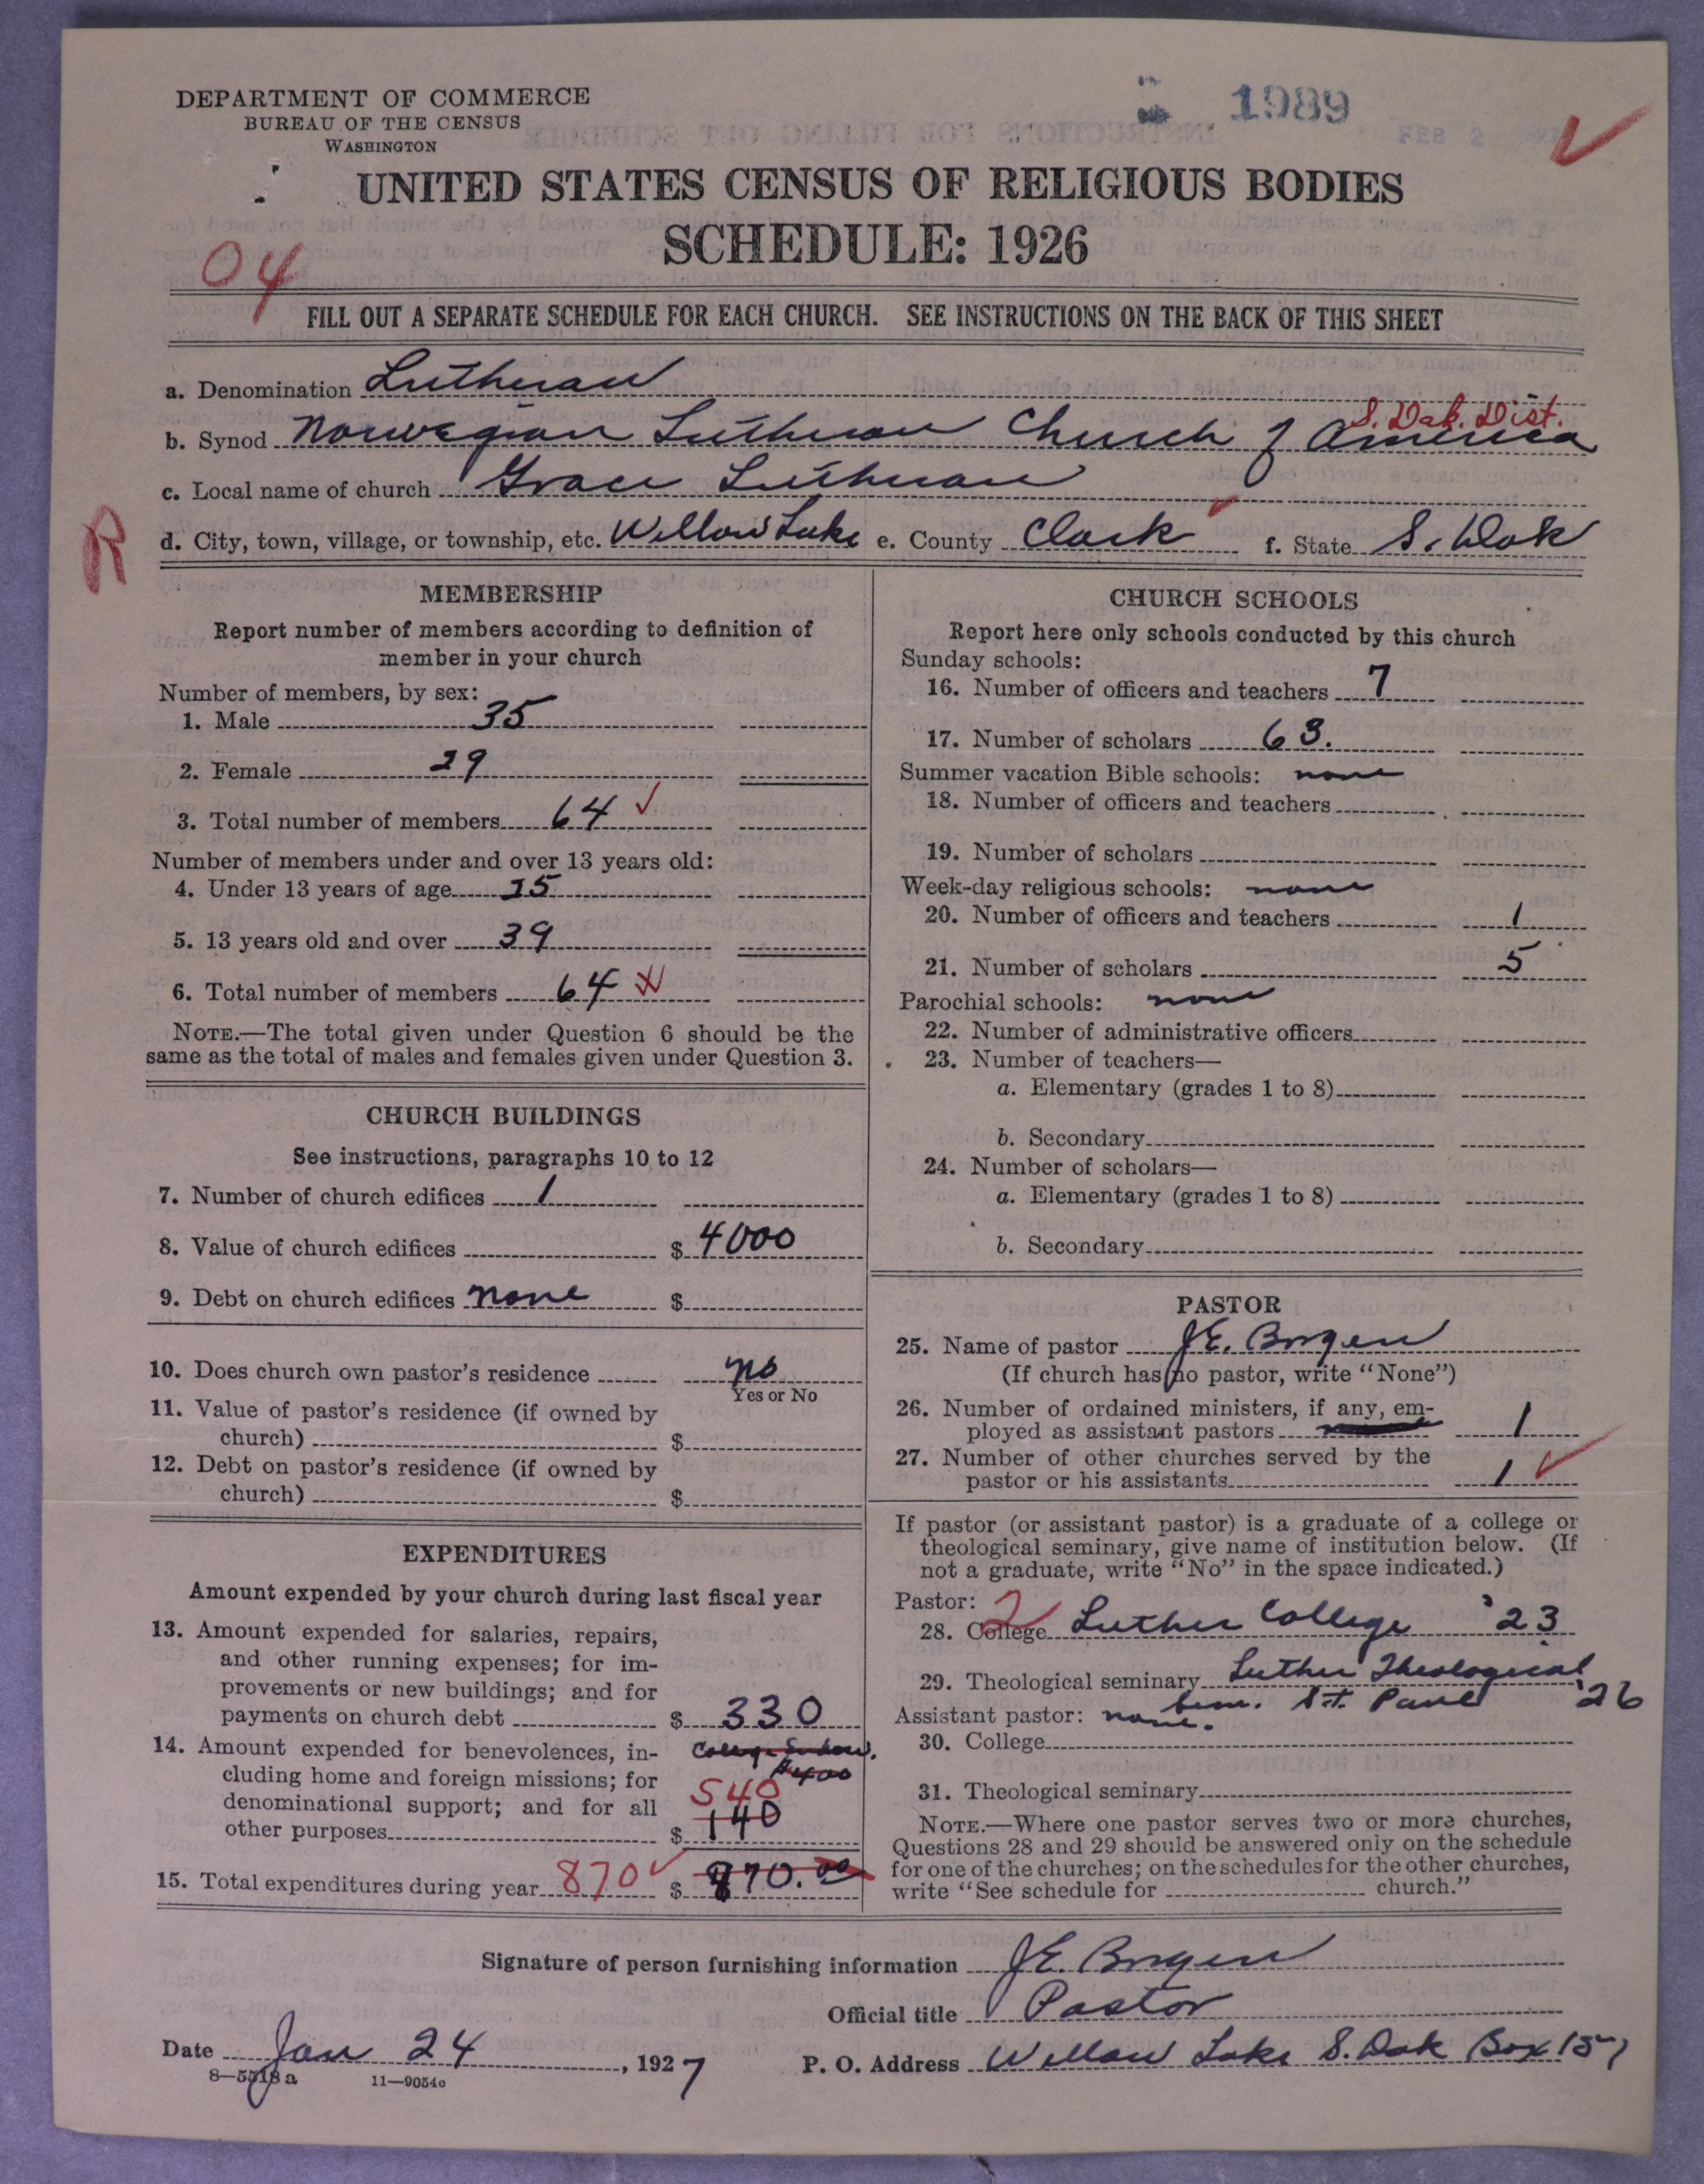 DEPARTMENT OF COMMERCE
BUREAU OF THE CENSUS
WASHINGTON
1989
FEB 2
UNITED STATES CENSUS OF RELIGIOUS BODIES
SCHEDULE: 1926
04
FILL OUT A SEPARATE SCHEDULE FOR EACH CHURCH. SEE INSTRUCTIONS ON THE BACK OF THIS SHEET
a. Denomination Lutheran
S. Dak. Dist.
b. Synod Norwegian Lutheran Church of America
c. Local name of church Grace Lutheran
R
d. City, town, village, or township, etc. Willow Lake e. County Clark f. State S. Dak
MEMBERSHIP
Report number of members according to definition of
member in your church
Number of members, by sex:
1. Male 35
2. Female 29
3. Total number of members 64 ✓
Number of members under and over 13 years old:
4. Under 13 years of age 25
5. 13 years old and over 39
6. Total number of members 64
NOTE.—The total given under Question 6 should be the
same as the total of males and females given under Question 3.
CHURCH BUILDINGS
See instructions, paragraphs 10 to 12
7. Number of church edifices 1
8. Value of church edifices $ 4000
9. Debt on church edifices none $
10. Does church own pastor's residence no
Yes or No
11. Value of pastor's residence (if owned by
church) $
12. Debt on pastor's residence (if owned by
church) $
EXPENDITURES
Amount expended by your church during last fiscal year
13. Amount expended for salaries, repairs,
and other running expenses; for im-
provements or new buildings; and for
payments on church debt $ 330
14. Amount expended for benevolences, in- College
cluding home and foreign missions; for $400
denominational support; and for all 540
other purposes $ 140
15. Total expenditures during year 870 ✓ $ 870.00
CHURCH SCHOOLS
Report here only schools conducted by this church
Sunday schools:
16. Number of officers and teachers 7
17. Number of scholars 63.
Summer vacation Bible schools: none
18. Number of officers and teachers
19. Number of scholars
Week-day religious schools: none
20. Number of officers and teachers 1
21. Number of scholars 5
Parochial schools: none
22. Number of administrative officers
23. Number of teachers—
a. Elementary (grades 1 to 8)
b. Secondary
24. Number of scholars—
a. Elementary (grades 1 to 8)
b. Secondary
PASTOR
25. Name of pastor J.E. Borgen
(If church has no pastor, write "None")
26. Number of ordained ministers, if any, em-
ployed as assistant pastors 1
27. Number of other churches served by the
pastor or his assistants 1 ✓
If pastor (or assistant pastor) is a graduate of a college or
theological seminary, give name of institution below. (If
not a graduate, write "No" in the space indicated.)
Pastor: 2
28. College Luther College '23
29. Theological seminary Luther Theological
Sem. St. Paul '26
Assistant pastor: none.
30. College
31. Theological seminary
NOTE.—Where one pastor serves two or more churches,
Questions 28 and 29 should be answered only on the schedule
for one of the churches; on the schedules for the other churches,
write "See schedule for church."
Signature of person furnishing information J.E. Borgen
Official title Pastor
Date Jan 24, 1927 P. O. Address Willow Lake S. Dak Box 157
8—5518a 11—9054c